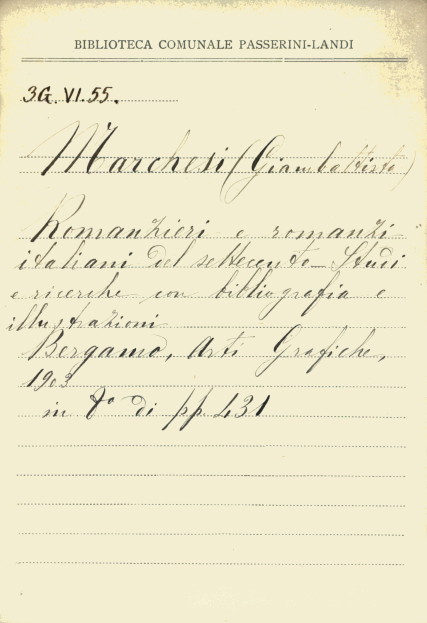 BIBLIOTECA COMUNALE PASSERINI-LANDI
3G. VI. 55.
Marchesi (Giambattista)
Romanzieri e romanzi
italiani del settecento - Studi
e ricerche con bibliografia e
illustrazioni
Bergamo, Arti Grafiche,
1903
in 8° di pp. 431